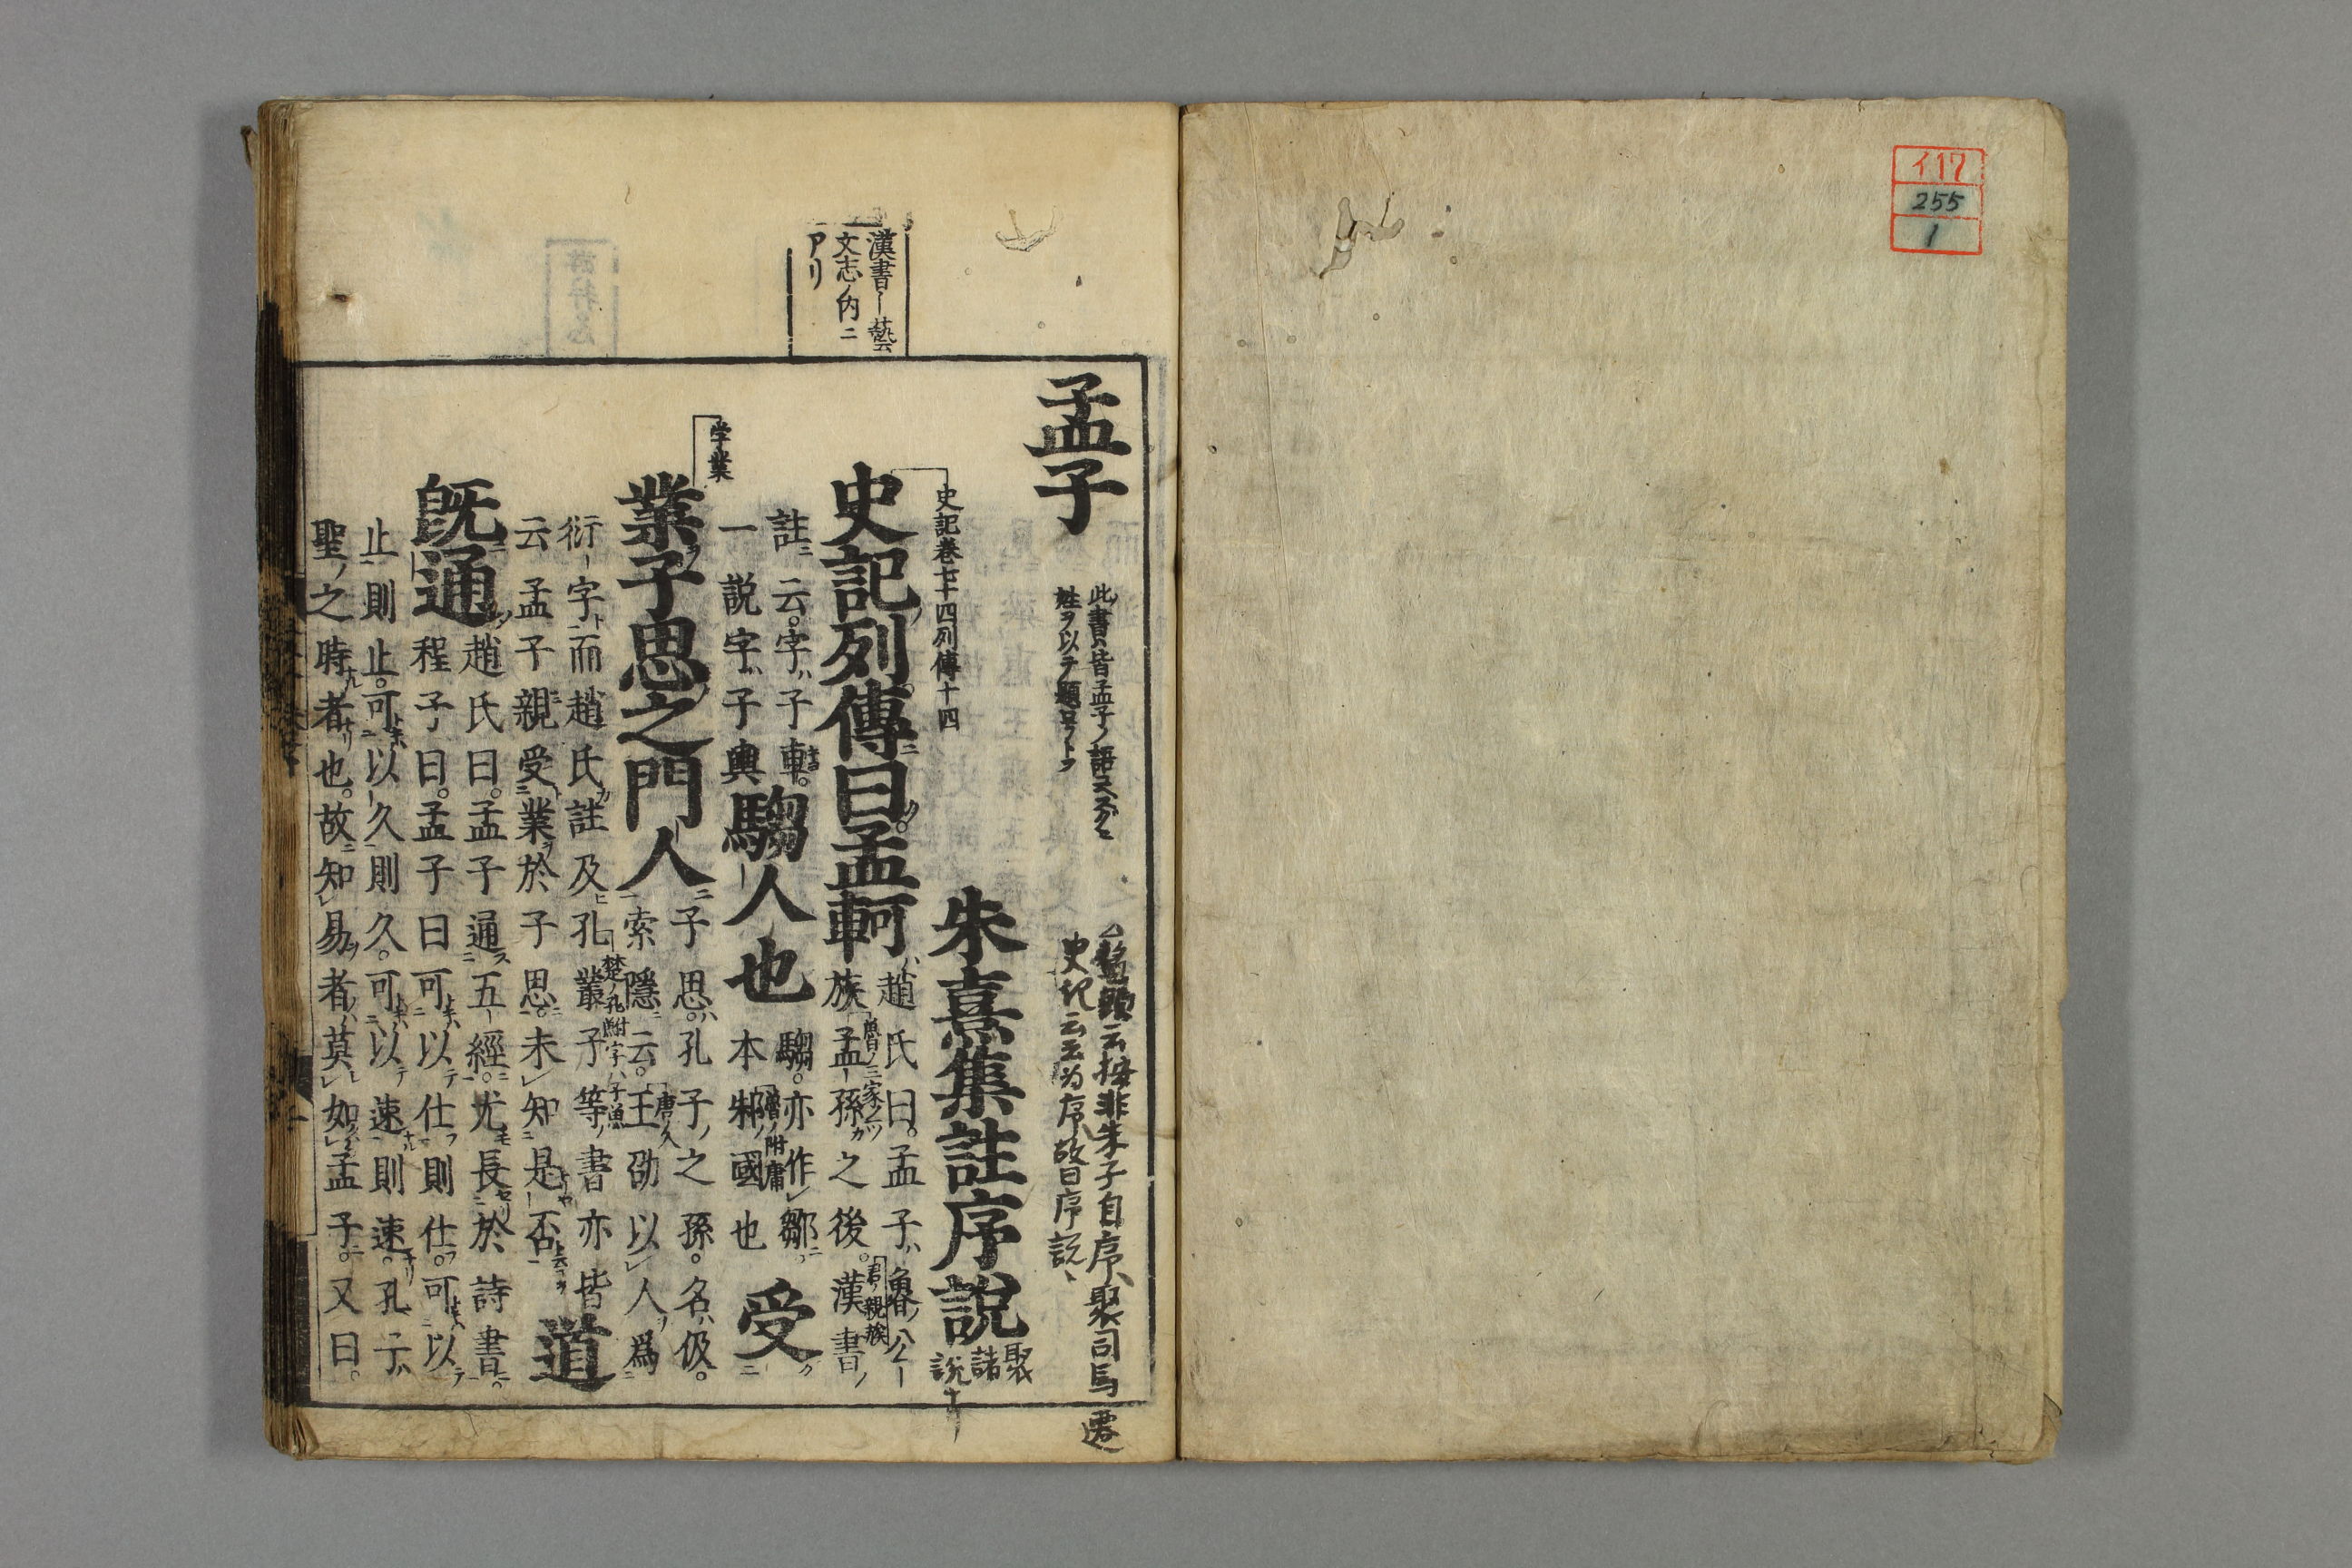 イ17
255
1
漢書ー藝
文志ノ内ニ
アリ
孟子
此書ハ皆孟子ノ語
姓ヲ以テ題
鼇頭云按非朱子自序、聚司馬遷
史記云云為序、故曰序說、
朱熹集註序說
聚諸說
史記卷七十四列傳十四
史記列傳曰孟軻
趙氏曰。孟子ハ魯ノ公ー
族孟ー孫カ之後。漢書ノ
魯ノ三家ノ一ツ
君ノ親族
註ニ云。字ハ子車。
一說字ハ子輿
騶人也
騶。亦作鄒ニ
本邾ノ國也
魯ノ附庸
受
学業
業子思之門人
子思ハ。孔子ノ之孫。名ハ伋。
索隱ニ云。王劭以人ヲ爲
唐ノ人
衍ー字ト而趙氏カ註及孔叢子等ノ書亦皆
楚ノ孔附字ハ子魚
云孟子親受業ヲ於子思。未知是否
道
既通
趙氏曰。孟子通五ー經。尤長於詩書。
程子曰。孟子曰可以テ仕則仕。可以テ
止則止。可以久則久。可以テ速則速。孔子ハ
聖ノ之時ナル者ナリ也。故知易者莫如孟子。又曰。